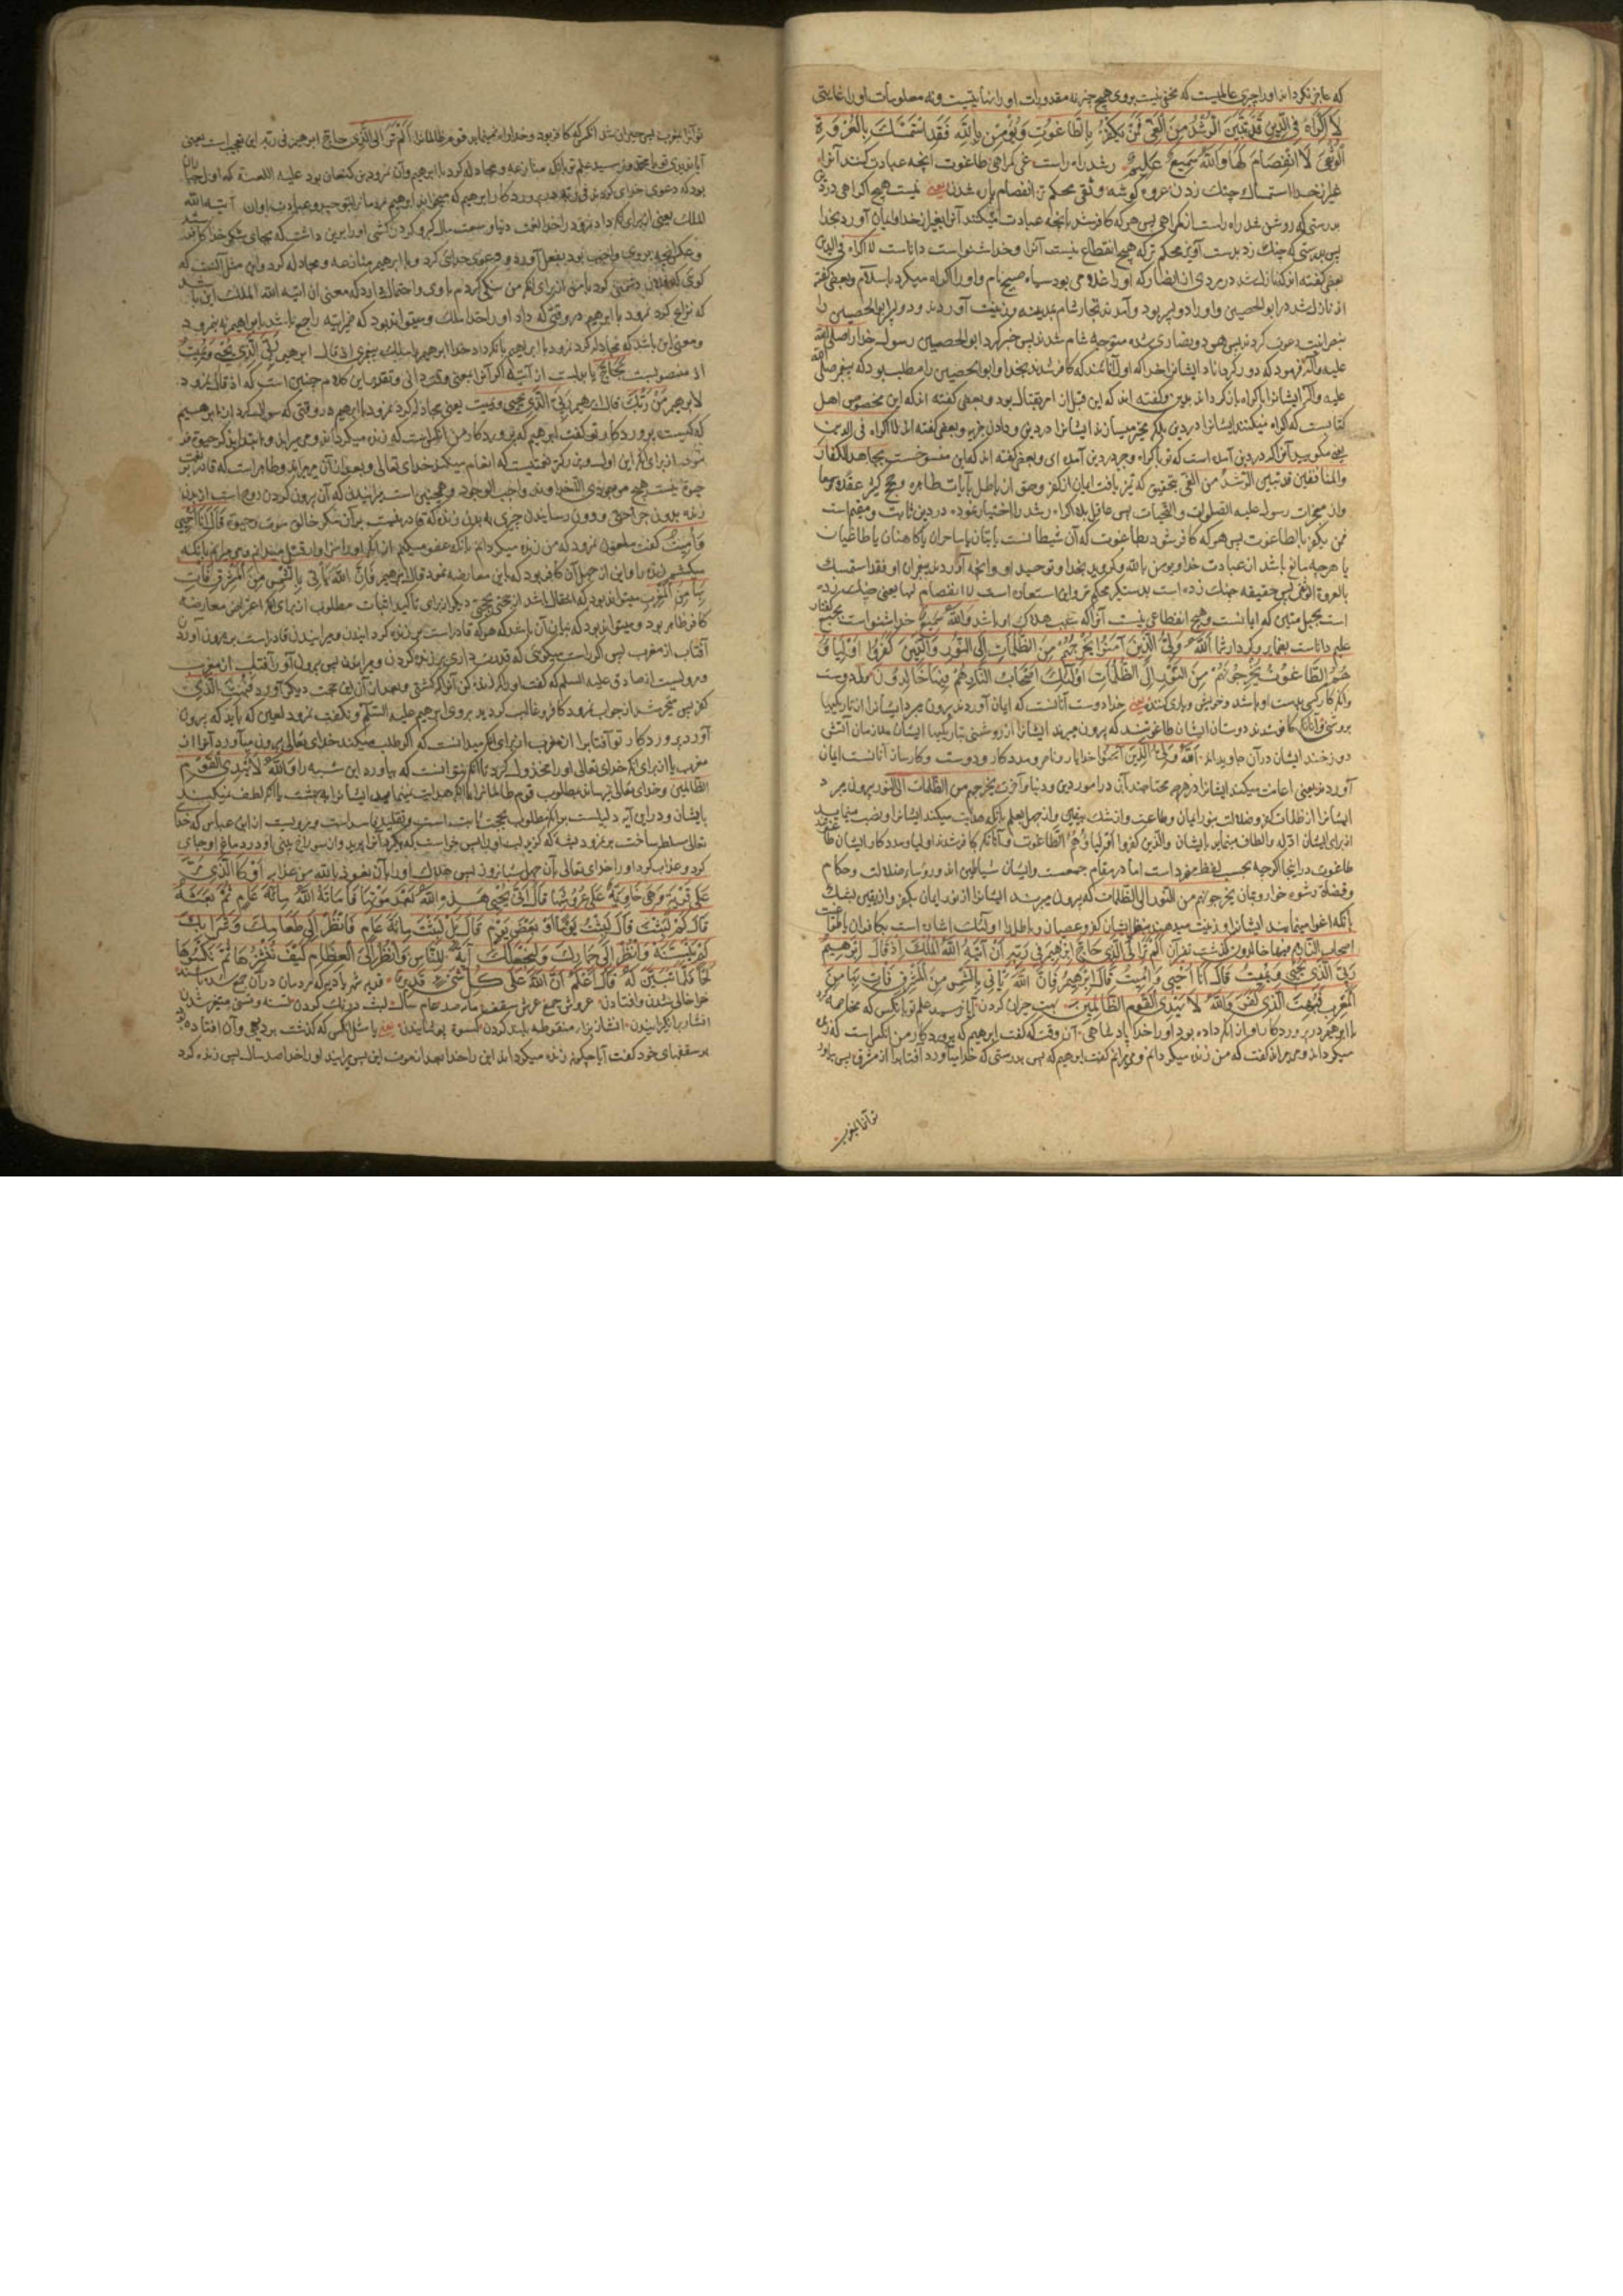 که عاجز نکرداند او را چیزی عالمیست که مخفی نیست بروی هیچ چیز نه مقدورات او را نهایتیست و نه معلومات او را غایتی
لَا إِكْرَاهَ فِي الدِّينِ قَدْ تَبَيَّنَ الرُّشْدُ مِنَ الْغَيِّ فَمَنْ يَكْفُرْ بِالطَّاغُوتِ وَيُؤْمِنْ بِاللَّهِ فَقَدِ اسْتَمْسَكَ بِالْعُرْوَةِ
الْوُثْقَى لَا انْفِصَامَ لَهَا وَاللَّهُ سَمِيعٌ عَلِيمٌ رشد راه راست غی کمراهی طاغوت آنچه عبادت کنند آنرا
غیر از خدا استمساک چنك زدن عروه کوشه وثقی محکم تر انفصام پاره شدن یعنی نیست هیچ اکراهی در دین
بدرستی که روشن شد راه راست از کمراهی پس هر که کافر شد بآنچه عبادت میکنند آنرا بغیر از خدا و ایمان آورد بخدا
پس بدرستی که چنك زد بدست آویز محکم تر که هیچ انقطاع نیست آنرا و خدا شنواست داناست لا اکراه فی الدین
بعضی کفته اند که نازل شد در مردی از انصار که او را غلامی بود سیاه صبیح نام و او را اکراه میکرد باسلام و بعضی کفته
اند نازل شد در ابو الحصین و او را دو پسر بود و آمدند تجار شام بمدینه و زینت آوردند و دو پسر ابو الحصین را
بنصرانیت دعوت کردند پس هر دو نصاری شده متوجه شام شدند پس خبر کرد ابو الحصین رسول خدا را صلی الله
علیه وآله فرمود که دور کرداناد ایشانرا خدا که اول آنانند که کافر شدند بخدا و ابو الحصین را مطلب بود که پیغمبر صلی الله
علیه وآله ایشانرا باکراه بازکرداند بدین و کفته اند که این قبل از امر بقتال بود و بعضی کفته اند که این مخصوص اهل
کتابست که اکراه نمیکنند ایشانرا در دین بلکه مخیر میسازند ایشانرا در دین و دادن جزیه و بعضی کفته اند لا اکراه فی الدین
یعنی مکویید آنرا که در دین آمده است که تو باکراه و جبر در دین آمده ای و بعضی کفته اند که این منسوخست بجاهد الکفار
والمنافقین قد تبین الرشد من الغی بتحقیق که تمیز یافت ایمان از کفر و حق از باطل بآیات ظاهره و حجج کثیره
و از معجزات رسول علیه الصلوات والتحیات پس عاقل بلا اکراه رشد را اختیار نموده در دین ثابت و مقیم است
فمن یکفر بالطاغوت پس هر که کافر شود بطاغوت که آن شیطانست یا بتان یا ساحران یا کاهنان یا طاغیان
یا هر چه مانع باشد از عبادت خدا و یومن بالله و کرویده بخدا و توحید او و آنچه آوردند پیغمبران او فقد استمسك
بالعروة الوثقی پس حقیقه چنك زده است بدستکیر محکم تر و این استعاره است لا انفصام لها یعنی چنك زده
است بحبل متین که ایمانست و هیچ انقطاعی نیست آنرا که باشد وَاللَّهُ سَمِيعٌ خدا شنواست بجمیع کفتار
علیم داناست بضمایر و کردار شما اللَّهُ وَلِيُّ الَّذِينَ آمَنُوا يُخْرِجُهُمْ مِنَ الظُّلُمَاتِ إِلَى النُّورِ وَالَّذِينَ كَفَرُوا أَوْلِيَاؤُ
هُمُ الطَّاغُوتُ يُخْرِجُونَهُمْ مِنَ النُّورِ إِلَى الظُّلُمَاتِ أُولَٰئِكَ أَصْحَابُ النَّارِ هُمْ فِيهَا خَالِدُونَ ولی دوست
و آنکه کار کسی بدست او باشد و خویش و یاری کننده یعنی خدا دوست آنانست که ایمان آوردند بیرون میبرد ایشانرا از تاریکیها
بروشنی و آنانکه کافر شدند دوستان ایشان طاغوتند که بیرون میبرند ایشانرا از روشنی بتاریکیها ایشان ملازمان آتش
دوزخند ایشان در آن جاویدانند اللَّهُ وَلِيُّ الَّذِينَ آمَنُوا خدا یار و ناصر و مددکار و دوست و کارساز آنانست ایمان
آوردند یعنی اعانت میکند ایشانرا در هر چه محتاجند بآن در امور دین و دنیا و آخرت یخرجهم من الظلمات الی النور بیرون میبرد
ایشانرا از ظلمات کفر و ضلالت بنور ایمان و طاعت و از شك بیقین و از جهل بعلم بآنکه هدایت میکند ایشانرا و نصب مینماید
از برای ایشان ادله و الطاف مینماید بایشان والذین کفروا اولیاؤهم الطاغوت و آنانکه کافر شدند اولیا و مددکار ایشان طاغوتند
طاغوت در اینجا اکرچه بحسب لفظ مفرد است اما در مقام جمعست و ایشان شیاطین اند و روساء ضلالت و حکام
وقضات رشوه خوار و بتان یخرجونهم من النور الی الظلمات که بیرون میبرند ایشانرا از نور ایمان بکفر و از یقین بشك
بآنکه اغوا مینمایند ایشانرا و زینت میدهند بنظر ایشان کفر و عصیان و باطل را اولئك اشاره است بکافران یا طاغوت
اصحاب النار هم فیها خالدون أَلَمْ تَرَ إِلَى الَّذِي حَاجَّ إِبْرَاهِيمَ فِي رَبِّهِ أَنْ آتَاهُ اللَّهُ الْمُلْكَ إِذْ قَالَ إِبْرَاهِيمُ
رَبِّيَ الَّذِي يُحْيِي وَيُمِيتُ قَالَ أَنَا أُحْيِي وَأُمِيتُ قَالَ إِبْرَاهِيمُ فَإِنَّ اللَّهَ يَأْتِي بِالشَّمْسِ مِنَ الْمَشْرِقِ فَأْتِ بِهَا مِنَ
الْمَغْرِبِ فَبُهِتَ الَّذِي كَفَرَ وَاللَّهُ لَا يَهْدِي الْقَوْمَ الظَّالِمِينَ بهت حیران کردن آیا نرسید علم تو بآنکس که مخاصمه کرد
با ابراهیم در پروردکار او از آنکه داده بود او را خدا پادشاهی آن وقت که کفت ابراهیم که پروردکار من آنکس است که زنده
میکرداند و میمیراند کفت که من زنده میکردانم و میمیرانم کفت ابراهیم که پس بدرستی که خدا میآورد آفتاب را از مشرق پس بیاور
تو آنرا بمغرب
تو آنرا بمغرب پس حیران شد آنکس که کافر بود و خدا راه نمینماید قوم ظالمانرا أَلَمْ تَرَ إِلَى الَّذِي حاج ابرهیم فی ربه این تعجب است یعنی
آیا ندیدی تو یا محمد و نرسید علم تو بآنکه منازعه و مجادله کرد با ابرهیم و آن نمرود بن کنعان بود علیه اللعنة که اول جباران
بود که دعوی خدای کردند فی ربه در پروردکار ابراهیم که میخواند ابراهیم نمرود را بتوحید و عبادت او ان آتیه الله
الملك یعنی از برای آنکه داد نمرود را خدا
کوی که فلان دشمنی کرد با من از برای آنکه من نیکی کردم با وی و احتمال دارد که معنی ان اتیه الله الملك این باشد
که نزاع کرد نمرود با ابرهیم در وقتی که داد او را خدا ملك و میتواند بود که ضمیر اتیه راجع باشد بابراهیم نه بنمرود
و معنی این باشد که مجادله کرد نمرود با ابراهیم بآنکه داد خدا ابرهیم را ملك پیغمبری اذ قال ابرهیم رَبِّيَ الَّذِي يُحْيِي وَيُمِيتُ
اذ منصوبست بحاج یا بدلست از آتیه اکر آنرا بمعنی وقت دانی و تقدیر این کلام چنین است که اذ قال نمرود
لابرهیم مَنْ رَبُّكَ قال ابرهیم رَبِّيَ الَّذِي يُحْيِي ویمیت یعنی مجادله کرد نمرود با ابرهیم در وقتی که سوال کرد از ابرهیم
که کیست پروردکار تو کفت ابرهیم که پروردکار من آنکس است که زنده میکرداند و میمیراند و ابتدا بذکر حیوة
شد از برای آنکه این اول و بزرکتر نعمتیست که انعام میکند خدای تعالی و بعد از آن میمیراند و ظاهر است که قادر نیست بر
حیوة نیست هیچ موجودی الا خداوند واجب الوجود و همچنین است میرانیدن که آن بیرون کردن روح است از بدن
زنده بدون جراحتی و بدون رسانیدن چیزی به بدن زنده که قادر نیست بر آن مکر خالق موت و حیوة قَالَ أَنَا أُحْيِي
وَأُمِيتُ کفت ملعون نمرود که من زنده میکردانم بآنکه عفو میکنم از آنکه او را سزاوار قتل میدانم و میمیرانم بآنکه
میکشم زنده را و این از جهل آن کافر بود که این معارضه نمود قال ابرهیم فَإِنَّ اللَّهَ يَأْتِي بِالشَّمْسِ مِنَ الْمَشْرِقِ فَأْتِ
بِهَا مِنَ الْمَغْرِبِ میتواند بود که انتقال باشد از حجتی بحجتی دیکر از برای تاکید اثبات مطلوب از برای آنکه اعتراض معارضه
کافر ظاهر بود و میتواند بود که بیان آن باشد که هر که قادر است بر زنده کردانیدن و میرانیدن قادر است بر بیرون آوردن
آفتاب از مغرب پس اکر راست میکوی که قدرت داری بر زنده کردن و میرانیدن پس بیرون آور آفتاب از مغرب
و مرویست از صادق علیه السلم که کفت او را که زنده کن آنرا که کشتی و بعد از آن این حجت دیکر آورد فَبُهِتَ الَّذِي
کفر پس متحیر شد از جواب نمرود کافر و غالب کردید بروی ابرهیم علیه السلم و نکفت نمرود لعین که باید که بیرون
آورد پروردکار تو آفتاب را از مغرب از برای آنکه میدانست که اکر طلب میکند خدای تعالی بیرون میآورد آنرا از
مغرب یا از برای آنکه خدای تعالی او را مخذول کرد تا آنکه نتوانست که بیاورد این شبهه را وَاللَّهُ لَا يَهْدِي الْقَوْمَ
الظالمین و خدای تعالی نمیرساند بمطلوب قوم ظالمانرا یا آنکه هدایت نمینماید ایشانرا به بهشت یا آنکه لطف نمیکند
بایشان و در این آیه دلیلست بر آنکه مطلوب بحجت ثابت است و تقلید فاسد است و مرویست از ابن عباس که خدا
تعالی مسلط ساخت بر نمرود پشه
کرد و عذاب کرد او را خدای تعالی بآن چهل سال أَوْ كَالَّذِي مَرَّ
عَلَى قَرْيَةٍ وَهِيَ خَاوِيَةٌ عَلَى عُرُوشِهَا قَالَ أَنَّى يُحْيِي هَٰذِهِ اللَّهُ بَعْدَ مَوْتِهَا فَأَمَاتَهُ اللَّهُ مِائَةَ عَامٍ ثُمَّ بَعَثَهُ
قَالَ كَمْ لَبِثْتَ قَالَ لَبِثْتُ يَوْمًا أَوْ بَعْضَ يَوْمٍ قَالَ بَلْ لَبِثْتَ مِائَةَ عَامٍ فَانْظُرْ إِلَى طَعَامِكَ وَشَرَابِكَ
لَمْ يَتَسَنَّهْ وَانْظُرْ إِلَى حِمَارِكَ وَلِنَجْعَلَكَ آيَةً لِلنَّاسِ وَانْظُرْ إِلَى الْعِظَامِ كَيْفَ نُنْشِزُهَا ثُمَّ نَكْسُوهَا
لَحْمًا فَلَمَّا تَبَيَّنَ لَهُ قَالَ أَعْلَمُ أَنَّ اللَّهَ عَلَى كُلِّ شَيْءٍ قَدِيرٌ قریه شهر یا دیه که مردمان در آن جمع شده باشند
خوا خالی شدن و افتادن عروش جمع عرش سقف مائه صد عام سال لبث درنك کردن تسنه و تسنی متغیر شدن
انشار برانکیزانیدن انشاز بزاء منقوطه بلند کردن کسوة پوشانیدن یعنی یا مثل آنکس که کذشت بر دیهی و آن افتاده بود
بر سقفهای خود کفت آیا چکونه زنده میکرداند این را خدا بعد از موت این پس میرانید او را خدا صد سال پس زنده کرد